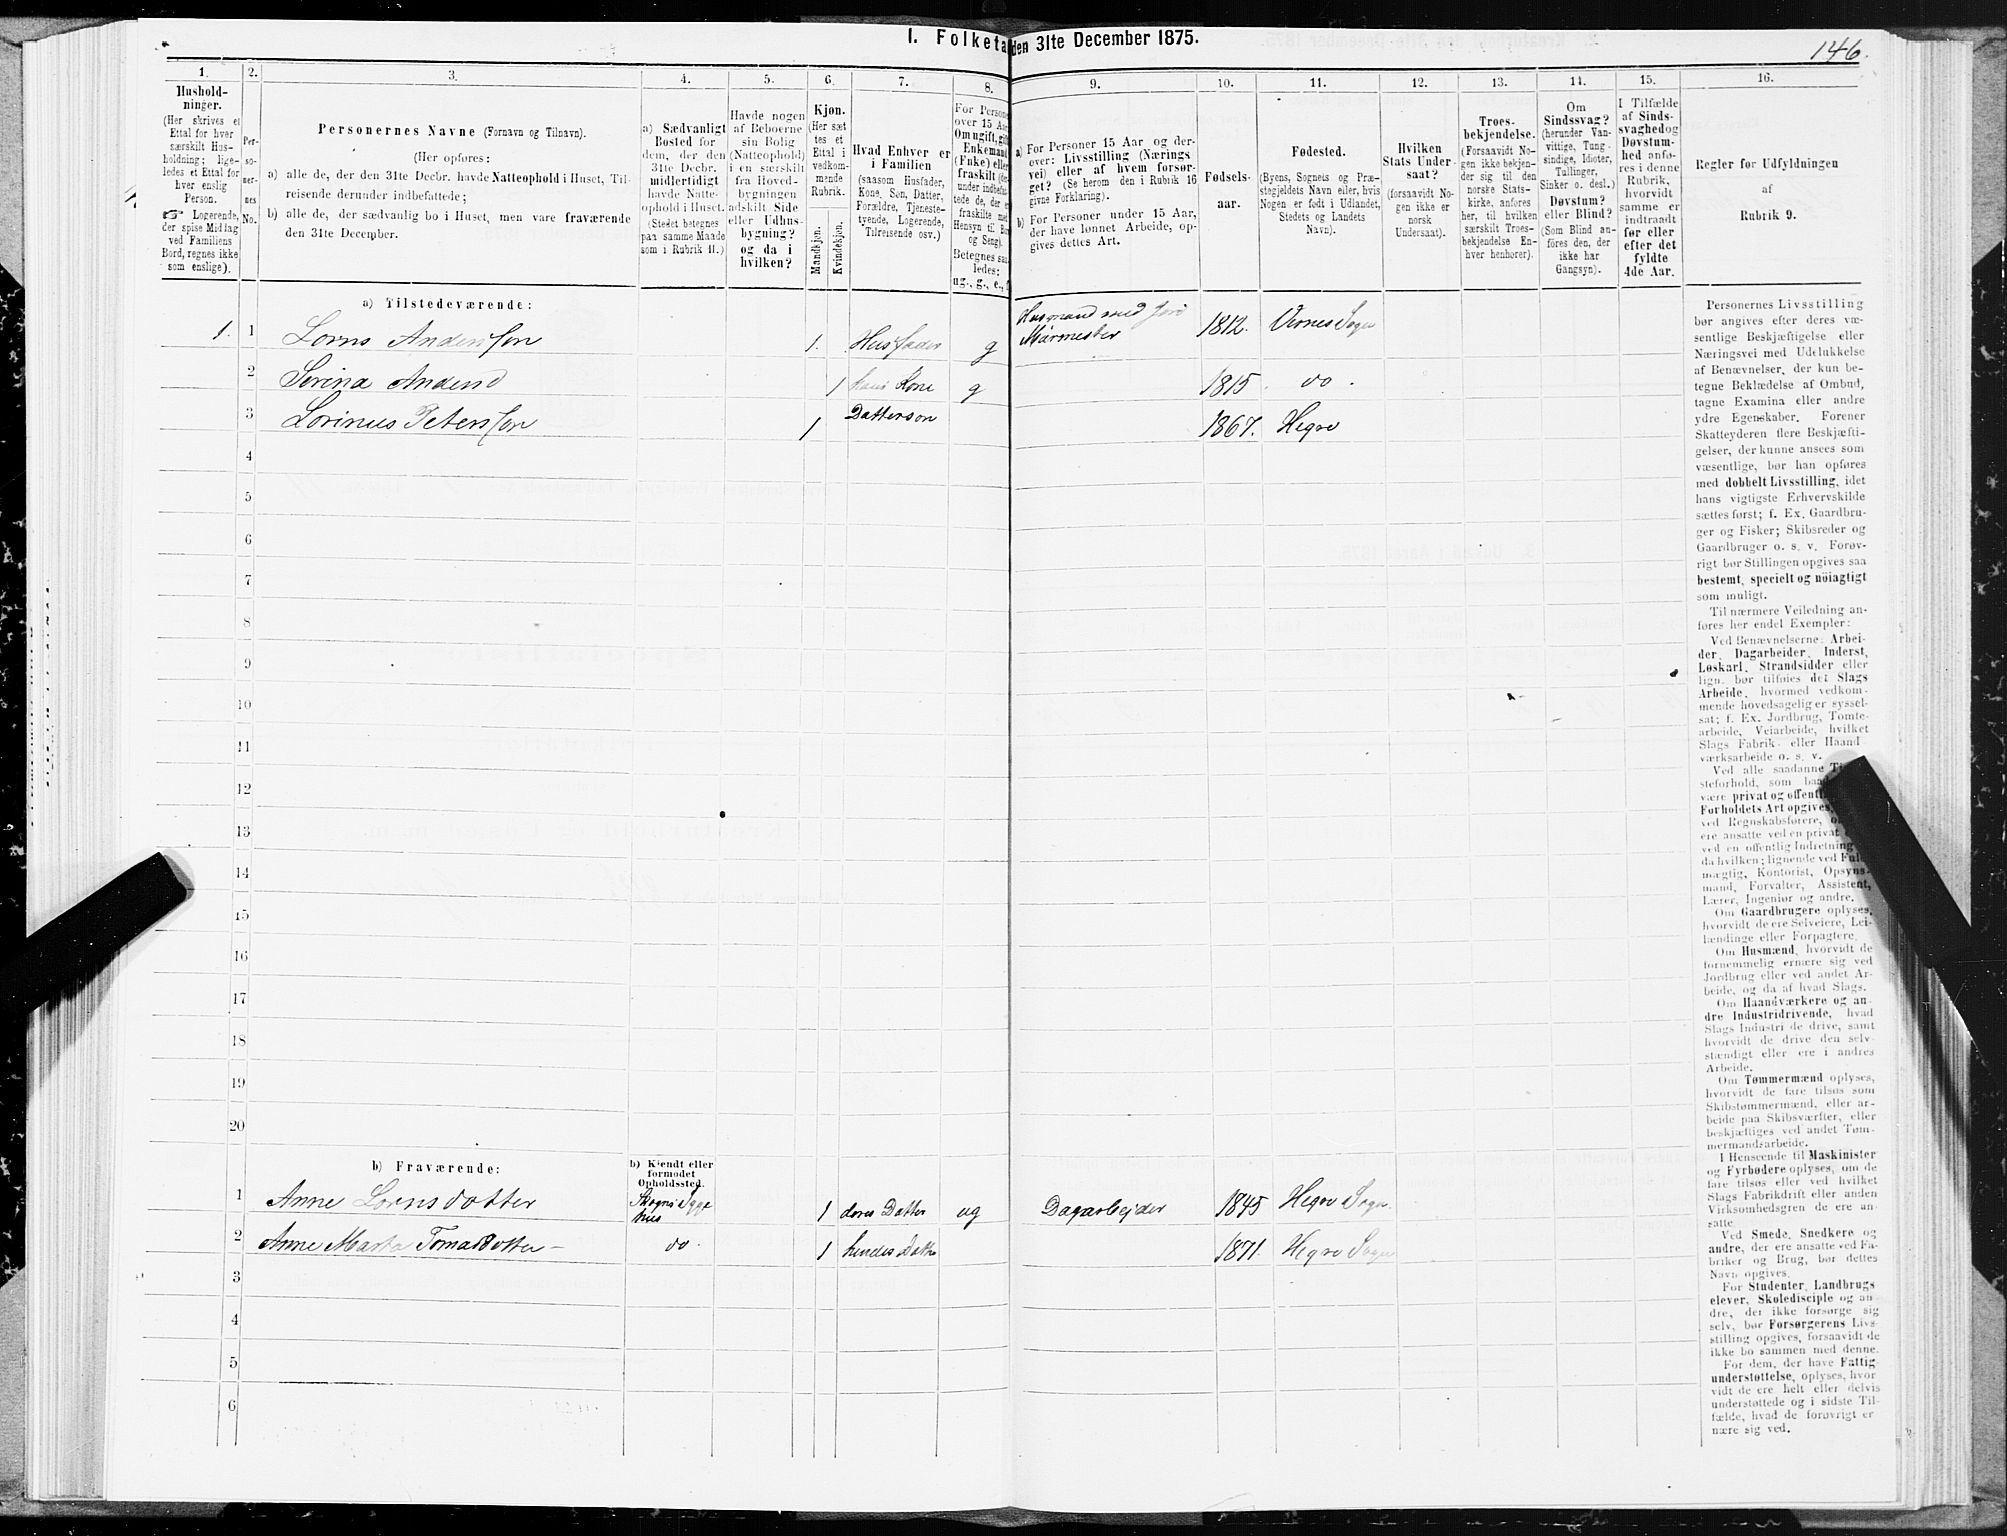 I. Folketa den 31te December 1875.
146.
1. 2. 3. 4. 5. 6. 7. 8. 9. 10. 11. 12. 13. 14. 15. 16.
Hushold-
ninger.
(Her skrives et
Ettal for hver
særskilt Hus-
holdning; lige-
ledes et Ettal for
hver enslig
Person.
☞ Logerende,
der spise Middag
ved Familiens
Bord, regnes ikke
som enslige).
Per-
so-
ner-
nes
No.
Personernes Navne (Fornavn og Tilnavn).
(Her opføres:
a) alle de, der den 31te Decbr. havde Natteophold i Huset, Til-
reisende derunder indbefattede;
b) alle de, der sædvanlig bo i Huset, men vare fraværende
den 31te December.
a) Sædvanligt
Bosted for
dem, der den
31te Decbr.
midlertidigt
havde Natte-
ophold i Huset.
(Stedet betegnes
paa samme Maade
som i Rubrik 11.)
Havde nogen
af Beboerne
sin Bolig
(Natteophold)
i en særskilt
fra Hoved-
bygningen
adskilt Side
eller Udhus-
bygning?
og da i
hvilken?
Kjøn.
(Her sæt
tes et
Ettal i
vedkom-
mende
Rubrik.
Mandkjøn.
Kvindekjøn.
Hvad Enhver er
i Familien
(saasom Husfader,
Kone, Søn, Datter,
Forældre, Tjeneste-
tyende, Logerende,
Tilreisende osv.)
For Persone
over 15 Aa
Om ugift, gift
Enkemand
(Enke) elle
fraskilt (de
under indbefat
tede de, der e
fraskilte me
Hensyn til Bo
og Seng).
Betegnes saa
ledes:
ug., g., e., f
a) For Personer 15 Aar og der-
over: Livsstilling (Nærings
vei) eller af hvem forsør-
get? (Se herom den i Rubrik 16
givne Forklaring).
b) For Personer under 15 Aar,
der have lønnet Arbeide, op-
gives dettes Art.
Fødsels-
aar.
Fødested.
(Byens, Sognets og Præ-
stegjeldets Navn eller, hvis
Nogen er født i Udlandet,
Stedets og Landets
Navn).
Hvilken
Stats Under-
saat?
(forsaavidt No-
gen ikke er
norsk
Undersaat).
Troes-
bekjendelse.
(Forsaavidt No-
gen ikke bekjen-
der sig til den
norske Stats-
kirke, anføres
her, til hvilken
særskilt Troes-
bekjendelse En-
hver henhører).
Om
Sindssvag?
(herunder Van-
vittige, Tung-
sindige, Idioter,
Tullinger,
Sinker o. desl.)
Døvstum?
eller Blind?
(Som Blind an-
føres den, der
ikke har
Gangsyn).
I Tilfælde
af Sinds-
svaghed og
Døvstum-
hed anfø-
res i denne
Rubrik,
hvorvidt
samme er
indtraadt
før eller
efter det
fyldte
4de Aar.
Regler for Udfyldningen
af
Rubrik 9.
a) Tilstedeværende:
1. 1 Lorns Andersson 1. Husfader g Husmand med Jord Mürmester 1812. Vernes Sogn
2 Serina Andersd 1 hans Kone g 1815. do.
3 Lorinus Petersson 1 Datterson 1867. Hegre
4
5
6
7
8
9
10
11
12
13
14
15
16
17
18
19
20
b) Fraværende:
b) Kjendt eller
formodet
Opholdssted.
1 Anne Lornsdotter 1 deres Datter ug Dagarbejder 1845 Hegre Sogn.
2 Anne Marta Tomasdotter do. 1 hendes Datte 1871. Hegre Sogn
3
4
5
6
Personernes Livsstilling
bør angives efter deres væ-
sentlige Beskjæftigelse eller
Næringsvei med Udelukkelse
af Benævnelser, der kun be-
tegne Beklædelse af Ombud,
tagne Examina eller andre
ydre Egenskaber. Forener
Skatteyderen flere Beskjæfti-
gelser, der kunne ansees som
væsentlige, bør han opføres
med dobbelt Livsstilling, idet
hans vigtigste Erhvervskilde
sættes først; f. Ex. Gaardbru-
ger og Fisker; Skibsreder og
Gaardbruger o. s. v. Forøv-
rigt bør Stillingen opgives saa
bestemt, specielt og nöiagtigt
som muligt.
Til nærmere Veiledning an-
føres her endel Exempler:
Ved Benævnelserne: Arbei-
der, Dagarbeider, Inderst,
Løskarl, Strandsidder eller
lign. bør tilføies det Slags
Arbeide, hvormed vedkom-
mende hovedsagelig er syssel-
sat; f. Ex. Jordbrug, Tomte-
arbeide, Veiarbeide, hvilket
Slags Fabrik- eller Haand-
værksarbeide o. s. v.
Ved alle saadanne
steforhold, som
være privat og offentl
Forholdets Art opgives,
ved Regnskabsførere,
ere ansatte ved en privat
ved en offentlig Indretning
da hvilken; lignende ved Fuld
mægtig, Kontorist, Opsyns-
mand, Forvalter, Assistent,
Lærer, Ingeniør og andre.
Om Gaardbrugere oplyses,
hvorvidt de ere Selveiere, Lei-
lændinge eller Forpagtere.
Om Husmænd, hvorvidt de
fornemmelig ernære sig ved
Jordbrug eller ved andet Ar-
beide, og da af hvad Slags.
Om Haandværkere og an-
dre Industridrivende, hvad
Slags Industri de drive, samt
hvorvidt de drive den selv-
stændigt eller ere i andres
Arbeide.
Om Tømmermænd oplyses,
hvorvidt de fare tilsøs som
Skibstømmermænd, eller ar-
beide paa Skibsværfter, eller
beskjæftiges ved andet Tøm-
mermandsarbeide.
I Henseende til Maskinister
og Fyrbødere oplyses, om de
fare tilsøs eller ved hvilket
Slags Fabrikdrift eller anden
Virksomhedsgren de ere an-
satte.
Ved Smede, Snedkere og
andre, der ere ansatte ved Fa-
briker og Brug, bør dettes
Navn opgives.
For Studenter, Landbrugs
elever, Skoledisciple og an-
dre, der ikke forsørge sig
selv, bør Forsørgerens Livs-
stilling opgives, forsaavidt de
ikke bo sammen med denne.
For dem, der have Fattig-
understøttelse, oplyses, hvor
vidt de ere helt eller delvis
understøttede og i sidste Til-
fælde, hvad de forøvrigt er
nære sig ved.